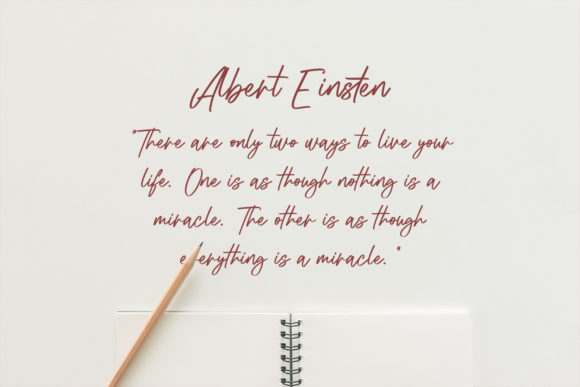 Albert Einsten
"There are only two ways to live your
life. One is as though nothing is a
miracle. The other is as though
everything is a miracle."